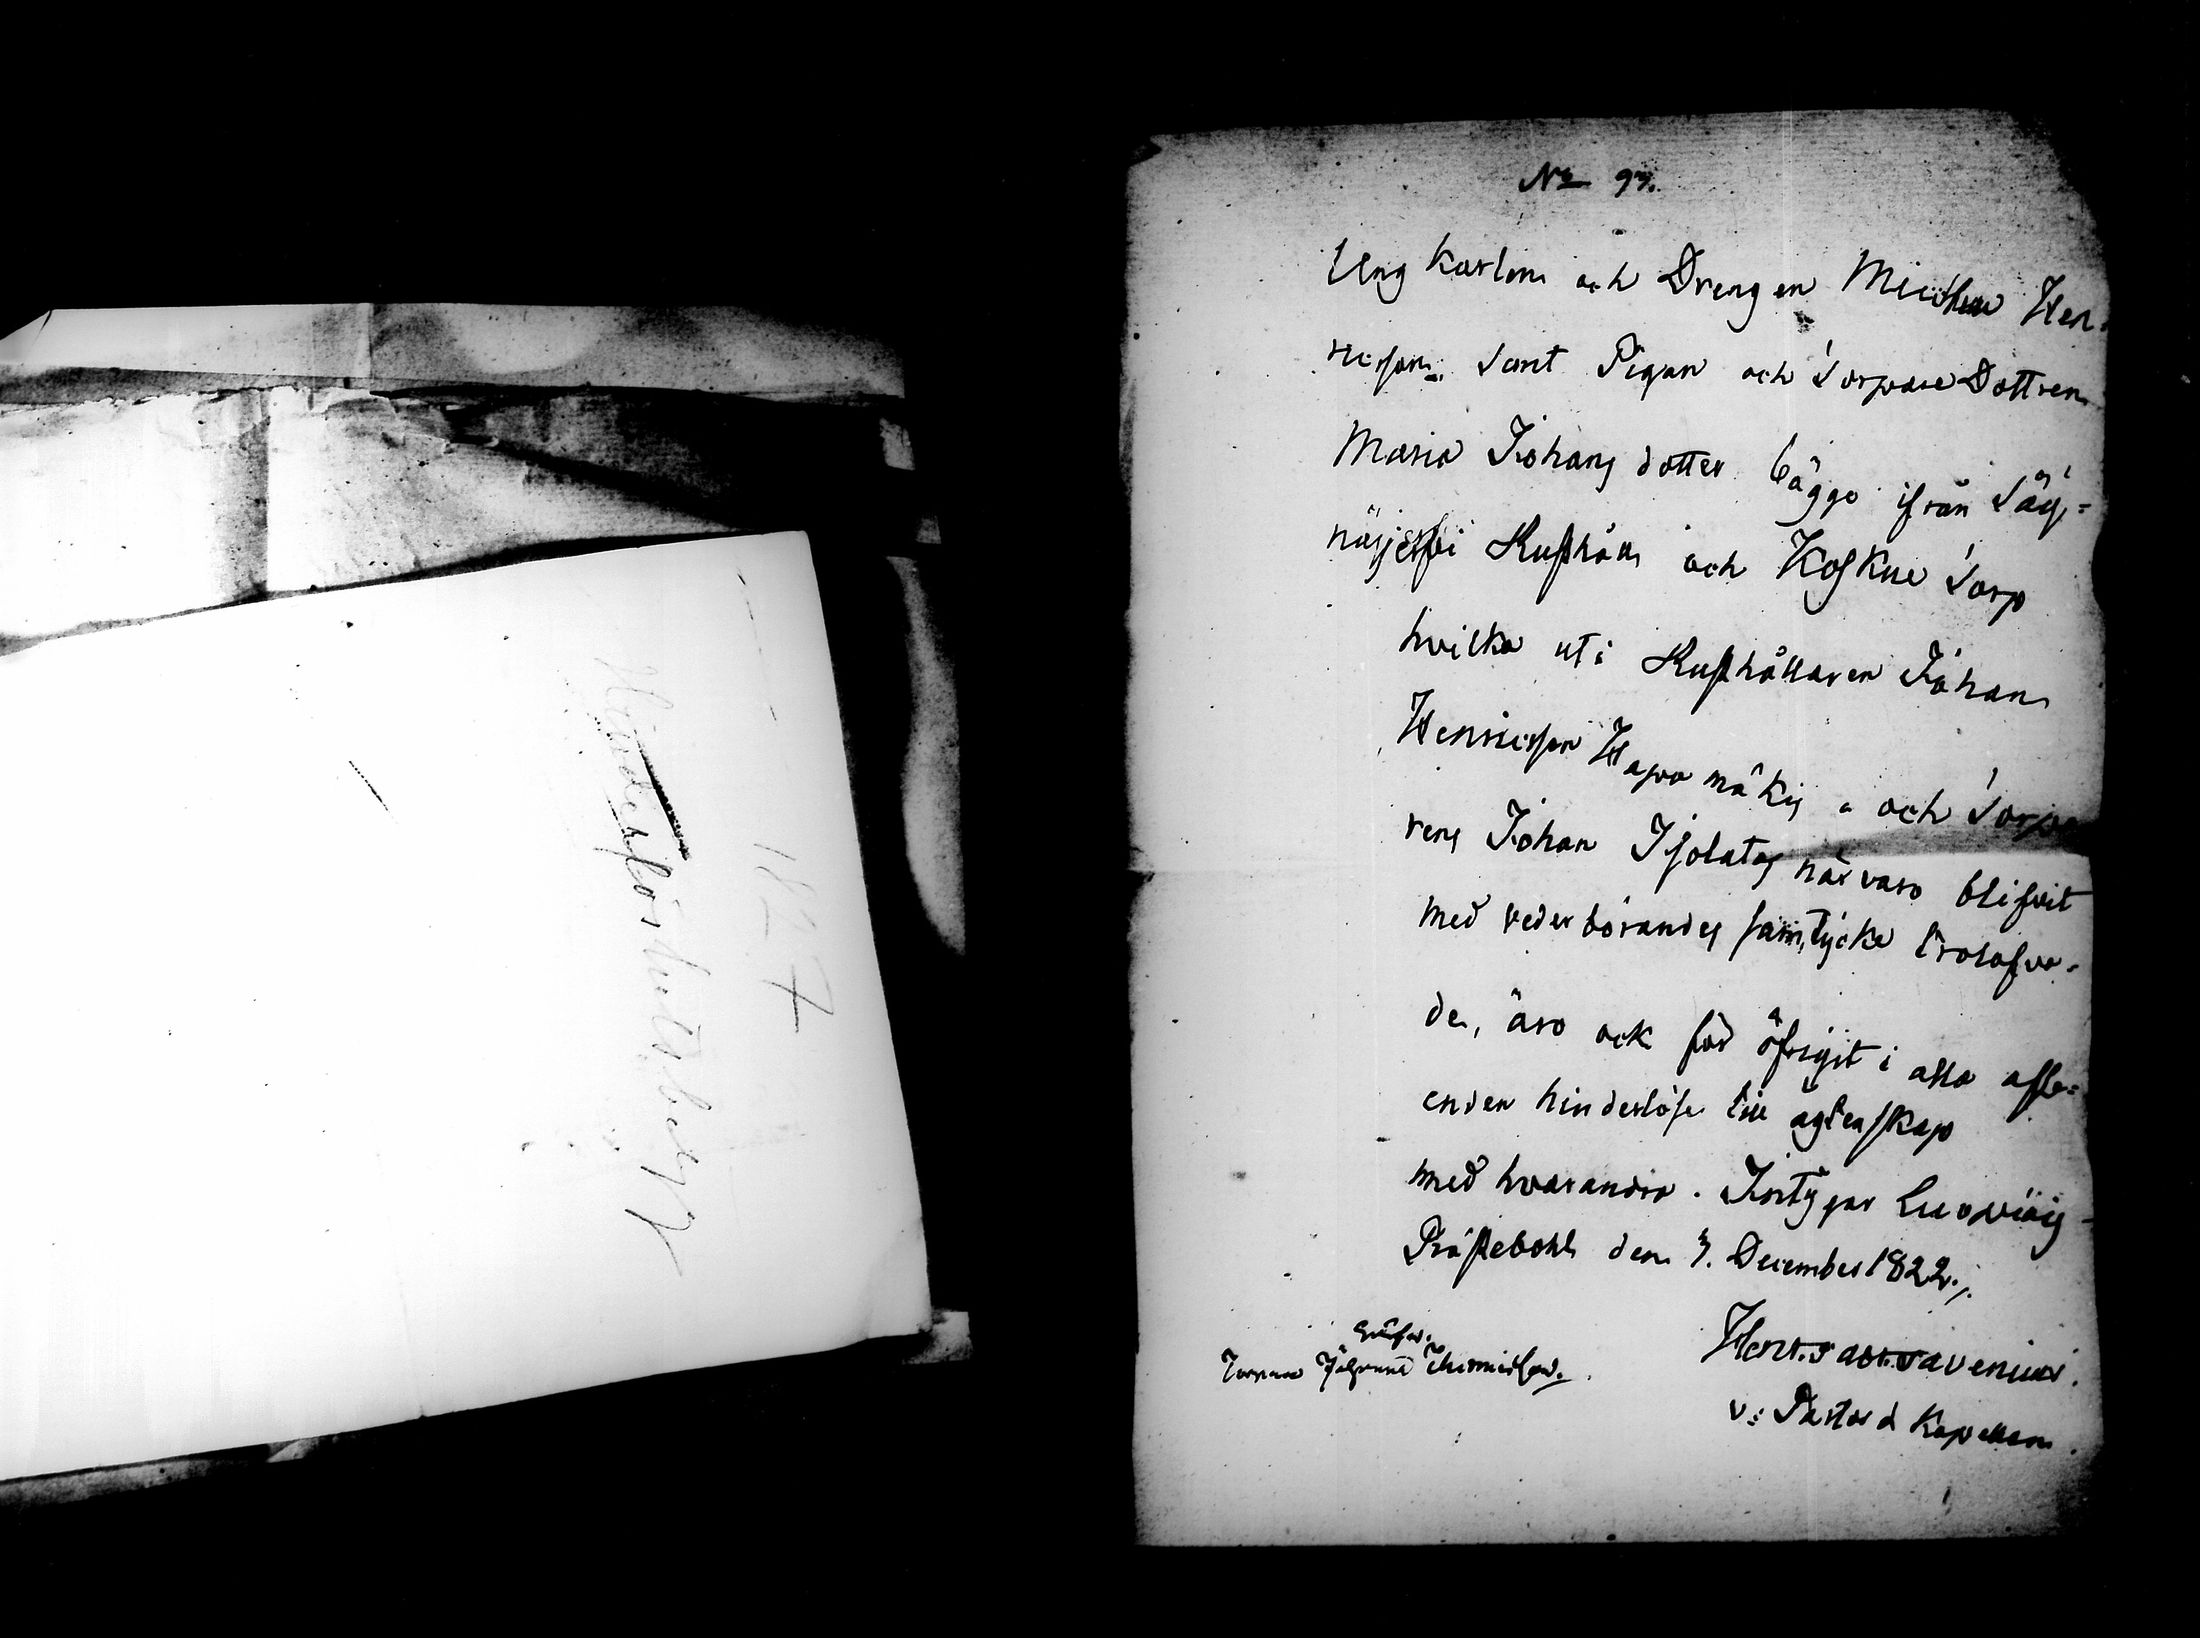 Hinderslöshetsbevis
1827
No 97.
Ung karlen och Drengen Michen Hen-
ricsson, samt Pigan och Torpare Dottren
Maria Johans dotter bägge ifrån Säg=
näsjerfvi Rusthåll och Koskue Torp
hvilka uti Rusthållaren Johan
Henricsson Hapamäkis och Torpa
rens Johan Isolatas närvaro blifvit
med vederbörandes samtycke trolofva-
de, äro ock för öfrigit i alla afse=
enden hinderlöse till ägtenskap
med hvarandra. Intygar Ludvigs-
Prästebohl den 7. December 1822.
Avenius.
v: Pastor & Kapellan.